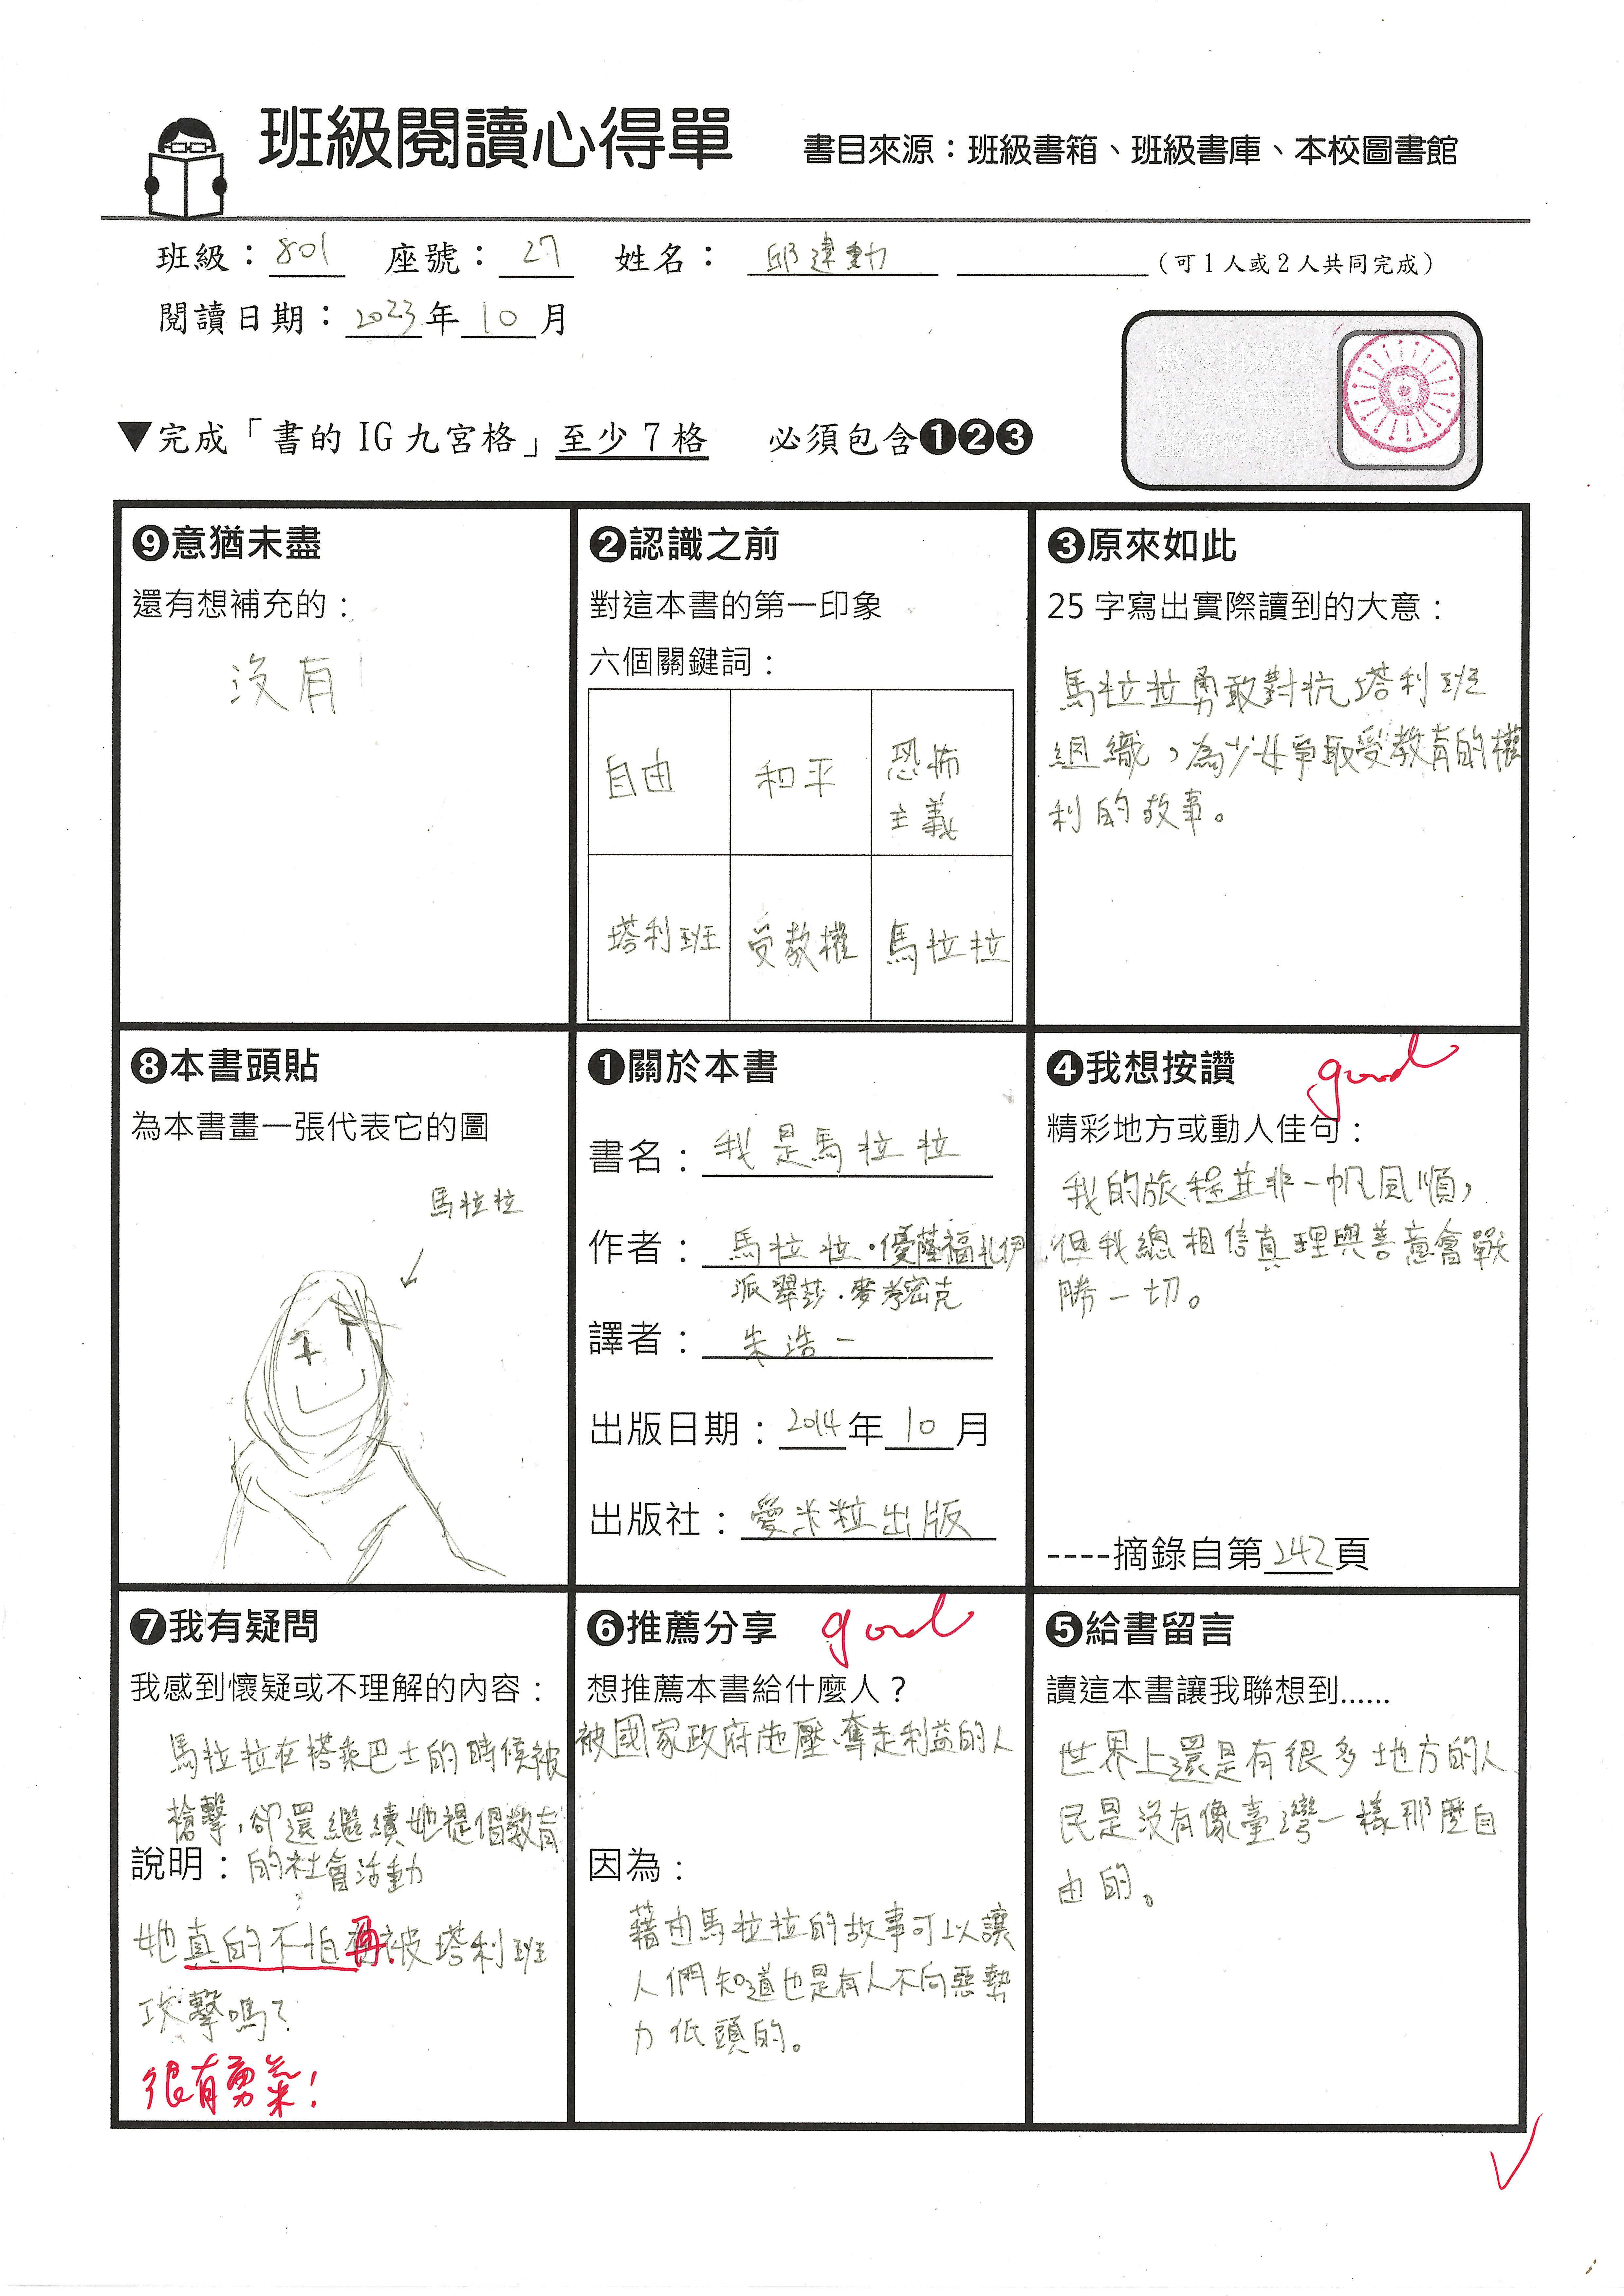 班級閱讀心得單
書目來源：班級書箱、班級書庫、本校圖書館
班級：801 座號：27 姓名：邱建動 （可1人或2人共同完成）
閱讀日期：2023年10月
▼完成「書的 IG 九宮格」至少7格 必須包含❶❷❸
❾意猶未盡
還有想補充的：
沒有
❷認識之前
對這本書的第一印象
六個關鍵詞：
自由 和平 恐怖
主義
塔利班 受教權 馬拉拉
❸原來如此
25 字寫出實際讀到的大意：
馬拉拉勇敢對抗塔利班
組織，為少女爭取受教育的權
利的故事。
❽本書頭貼
為本書畫一張代表它的圖
馬拉拉
❶關於本書
書名：我是馬拉拉
作者：馬拉拉·優薩福扎伊
派翠莎·麥考密克
譯者：朱浩一
出版日期：2014年10月
出版社：愛米粒出版
❹我想按讚
good
精彩地方或動人佳句：
我的旅程並非一帆風順，
但我總相信真理與善意會戰
勝一切。
----摘錄自第242頁
❼我有疑問
我感到懷疑或不理解的內容：
馬拉拉在搭乘巴士的時候被
槍擊，卻還繼續她提倡教育
說明：的社會活動
她真的不怕再被塔利班
攻擊嗎？
很有勇氣！
❻推薦分享
good
想推薦本書給什麼人？
被國家政府施壓、奪走利益的人
因為：
藉由馬拉拉的故事可以讓
人們知道也是有人不向惡勢
力低頭的。
❺給書留言
讀這本書讓我聯想到……
世界上還是有很多地方的人
民是沒有像臺灣一樣那麼自
由的。